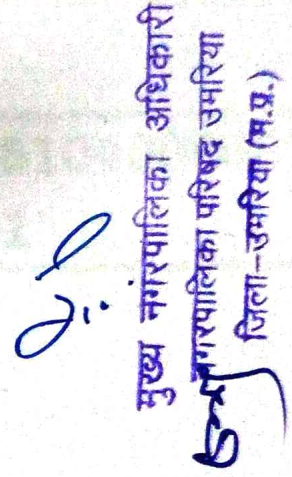 मुख्य नगरपालिका अधिकारी
नगरपालिका परिषद उमरिया
जिला-उमरिया (म.प्र.)